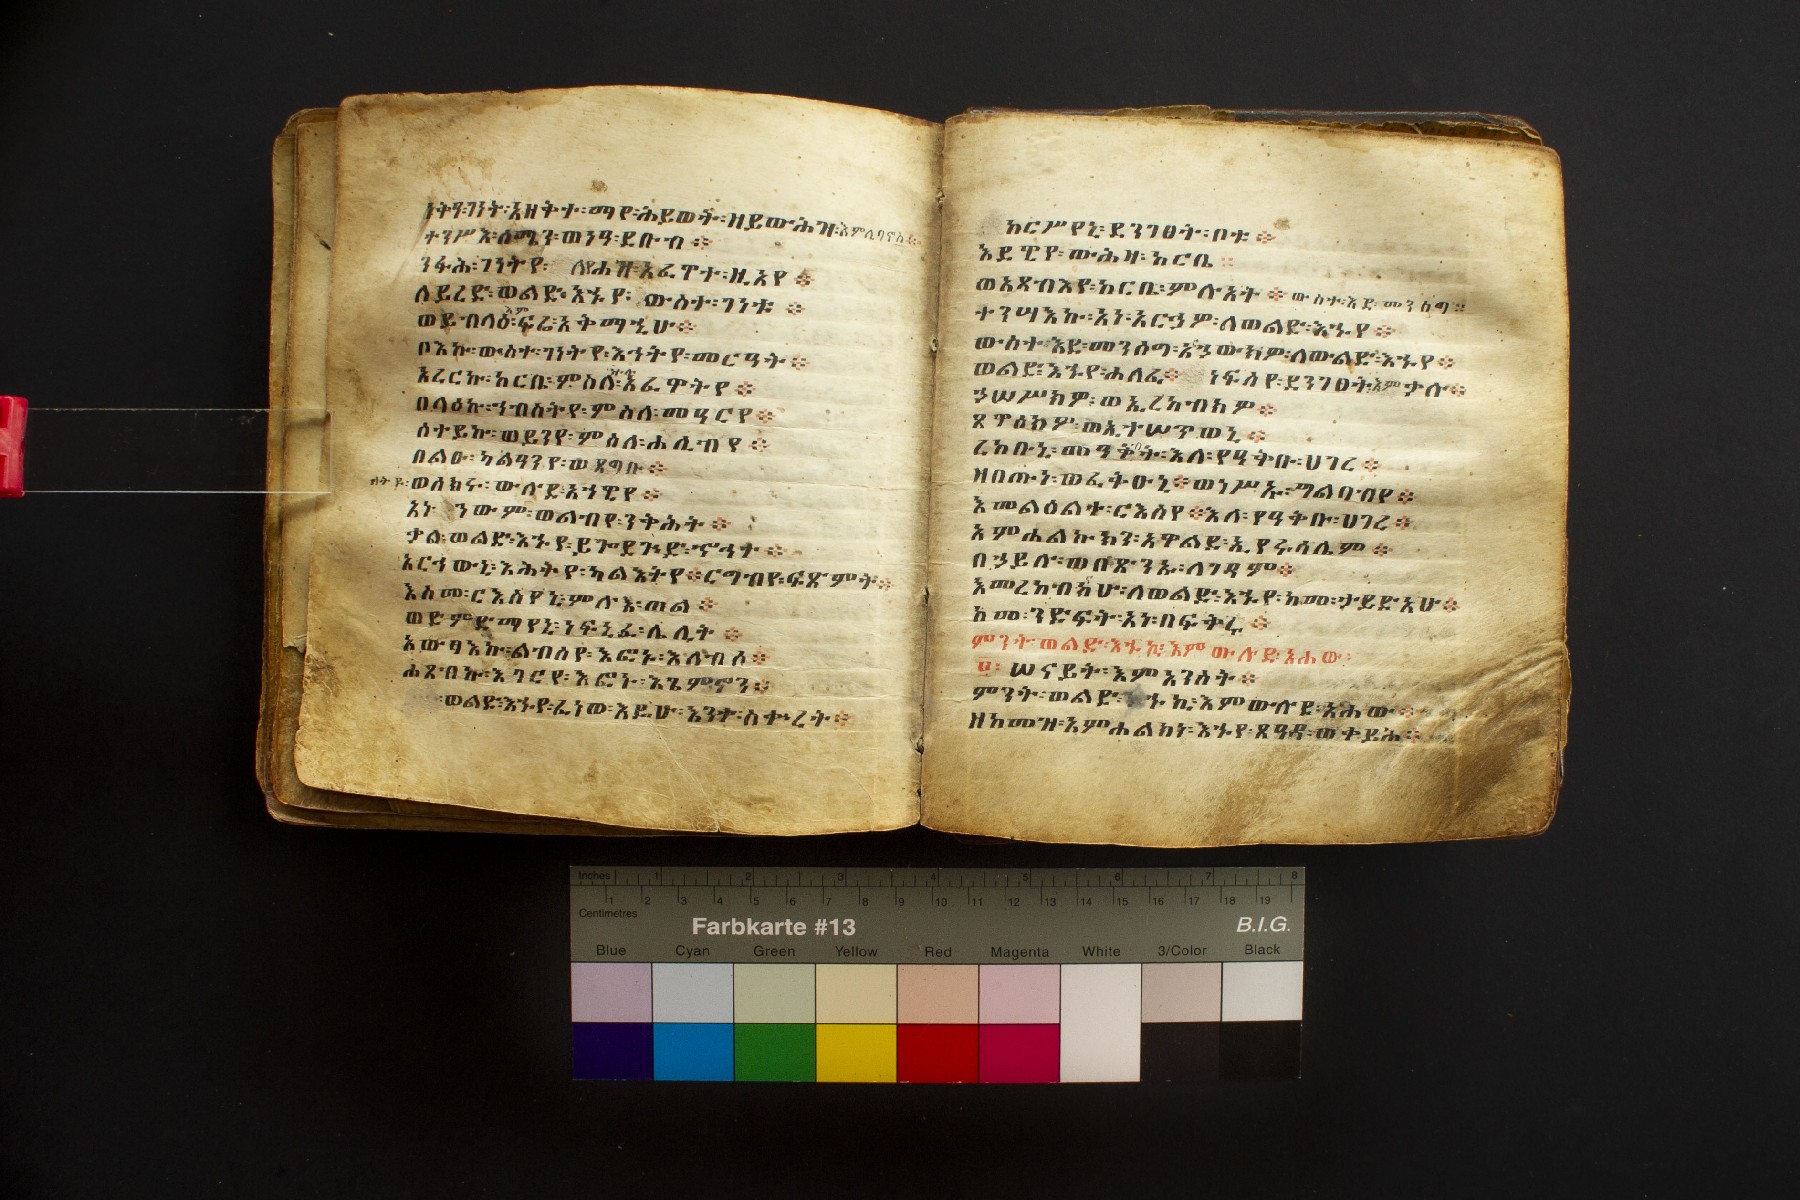 ነቅዓ፡ገነት፡አዘቅተ፡ማየ፡ሕይወት፡ዘይውሕዝ፡እምሊባኖስ፨
ተንሥእ፡ሰሜን፡ወነዓ፡ደቡብ፨
ንፋሕ፡ገነትየ፡ ለየሐዝ፡አፈዋተ፡ዚአየ፨
ለይረድ፡ወልድ፡እኁየ፡ ውስተ፡ገነቱ፨
ወይብላዕ፡እምፍሬ፡አቅማኂሁ፨
ቦእኩ፡ውስተ፡ገነትየ፡እኅትየ፡መርዓት፨
አረርኩ፡ከርቤ፡ምስለ፡አፈዋትየ፨
በላዕኩ፡ኅብስትየ፡ምስለ፡መዓርየ፨
ሰተይኩ፡ወይንየ፡ምስለ፡ሐሊብየ፨
በልዑ፡ካልዓንየ፡
ወስክሩ፡ውሉደ፡አኀዊየ፨
አነ ንውም፡ወልብየ፡ንቅሕት፨
ቃለ፡ወልድ፡እኁየ፡ይጐደጕድ፡ኆኅተ፨
አርኅውኒ፡እሕትየ፡ካልእትየ፨ርግብየ፡ፍጽምት፨
እስመ፡ርእስየኒ፡ምሉእ፡ጠል፨
ወድምድማየኒ፡ነፍኒፈ፡ሌሊት፨
አውፃእኩ፡ልብስየ፡እፎኑ፡እለብሶ፨
ሐጸብኩ፡እገርየ፡እፎኑ፡እጌምኖን፨
ወልድ፡እኁየ፡ፈነወ፡እዴሁ፡እንተ፡ስቍረት፨
ከርሥየኒ፡ደንገፀት፡ቦቱ፨
እደዊየ፡ውሕዛ፡ከርቤ፨
ወአጻብእየ፡ከርቤ፡ምሉአት፨ውስተ፡እደ፡መንሰግ፨
ተንሣእኩ፡አነ፡አርኁዎ፡ለወልድ፡እኁየ፨
ውስተ፡እደ፡መንሰግ፡አኅወክዎ፡ለወልድ፡እኁየ፨
ወልድ፡እኁየ፡ሐለፈ፨ ነፍስየ፡ደንገፀት፡እምቃሉ፨
ኃሠሥክዎ፡ወኢረከብክዎ፨
ጸዋዕክዎ፡ወኢተሠጥወኒ፨
ረከቡኒ፡መዓቅብት፡እለ፡የዓቅቡ፡ሀገረ፨
ዘበጡኒ፡ወፈቅዑኒ፨ወነሥኡ፡ግልባብየ፨
እመልዕልተ፡ርእስየ፨እለ፡የዓቅቡ፡ሀገረ፨
አምሐልኩክን፡አዋልደ፡ኢየሩሳሌም፨
በኃይሉ፡ወበጽንኡ፡ለገዳም፨
እመረከብካሁ፡ለወልድ፡እኁየ፡ከመ፡ታይድአሁ፨
ከመ፡ንድፍት፡አነ፡በፍቅሩ፨
ምንት፡ወልድ፡እኁኪ፡እምውሉደ፡አሐው፡
ሠናይት፡እምአንስት፨
ምንት፡ወልድ፡እኁኪ፡እምውሉደ፡አሐው፨
ዘከመዝ፡አምሐልከነ፡እኁየ፡ጸዓዳ፡ወቀይሕ፨
Inches 1 2 3 4 5 6 7 8
1 2 3 4 5 6 7 8 9 10 11 12 13 14 15 16 17 18 19
Centimetres
Farbkarte #13 B.I.G.
Blue Cyan Green Yellow Red Magenta White 3/Color Black